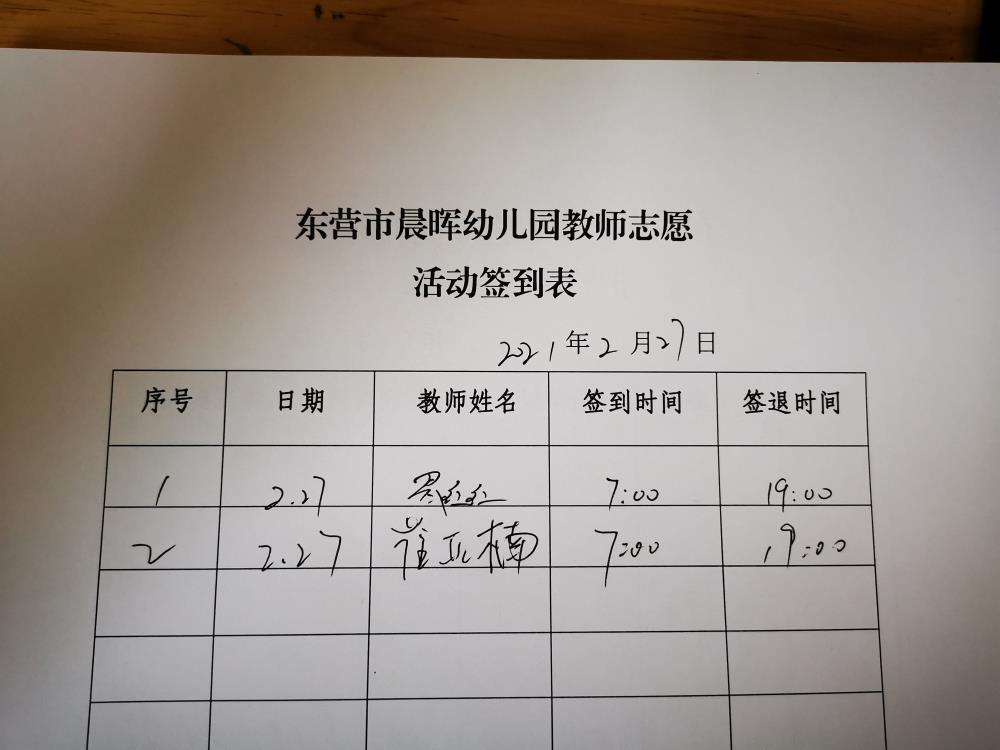 东营市晨晖幼儿园教师志愿
活动签到表
2021年2月27日
序号 日期 教师姓名 签到时间 签退时间
1 2.27 7:00 19:00
2 2.27 崔亚楠 7:00 19:00